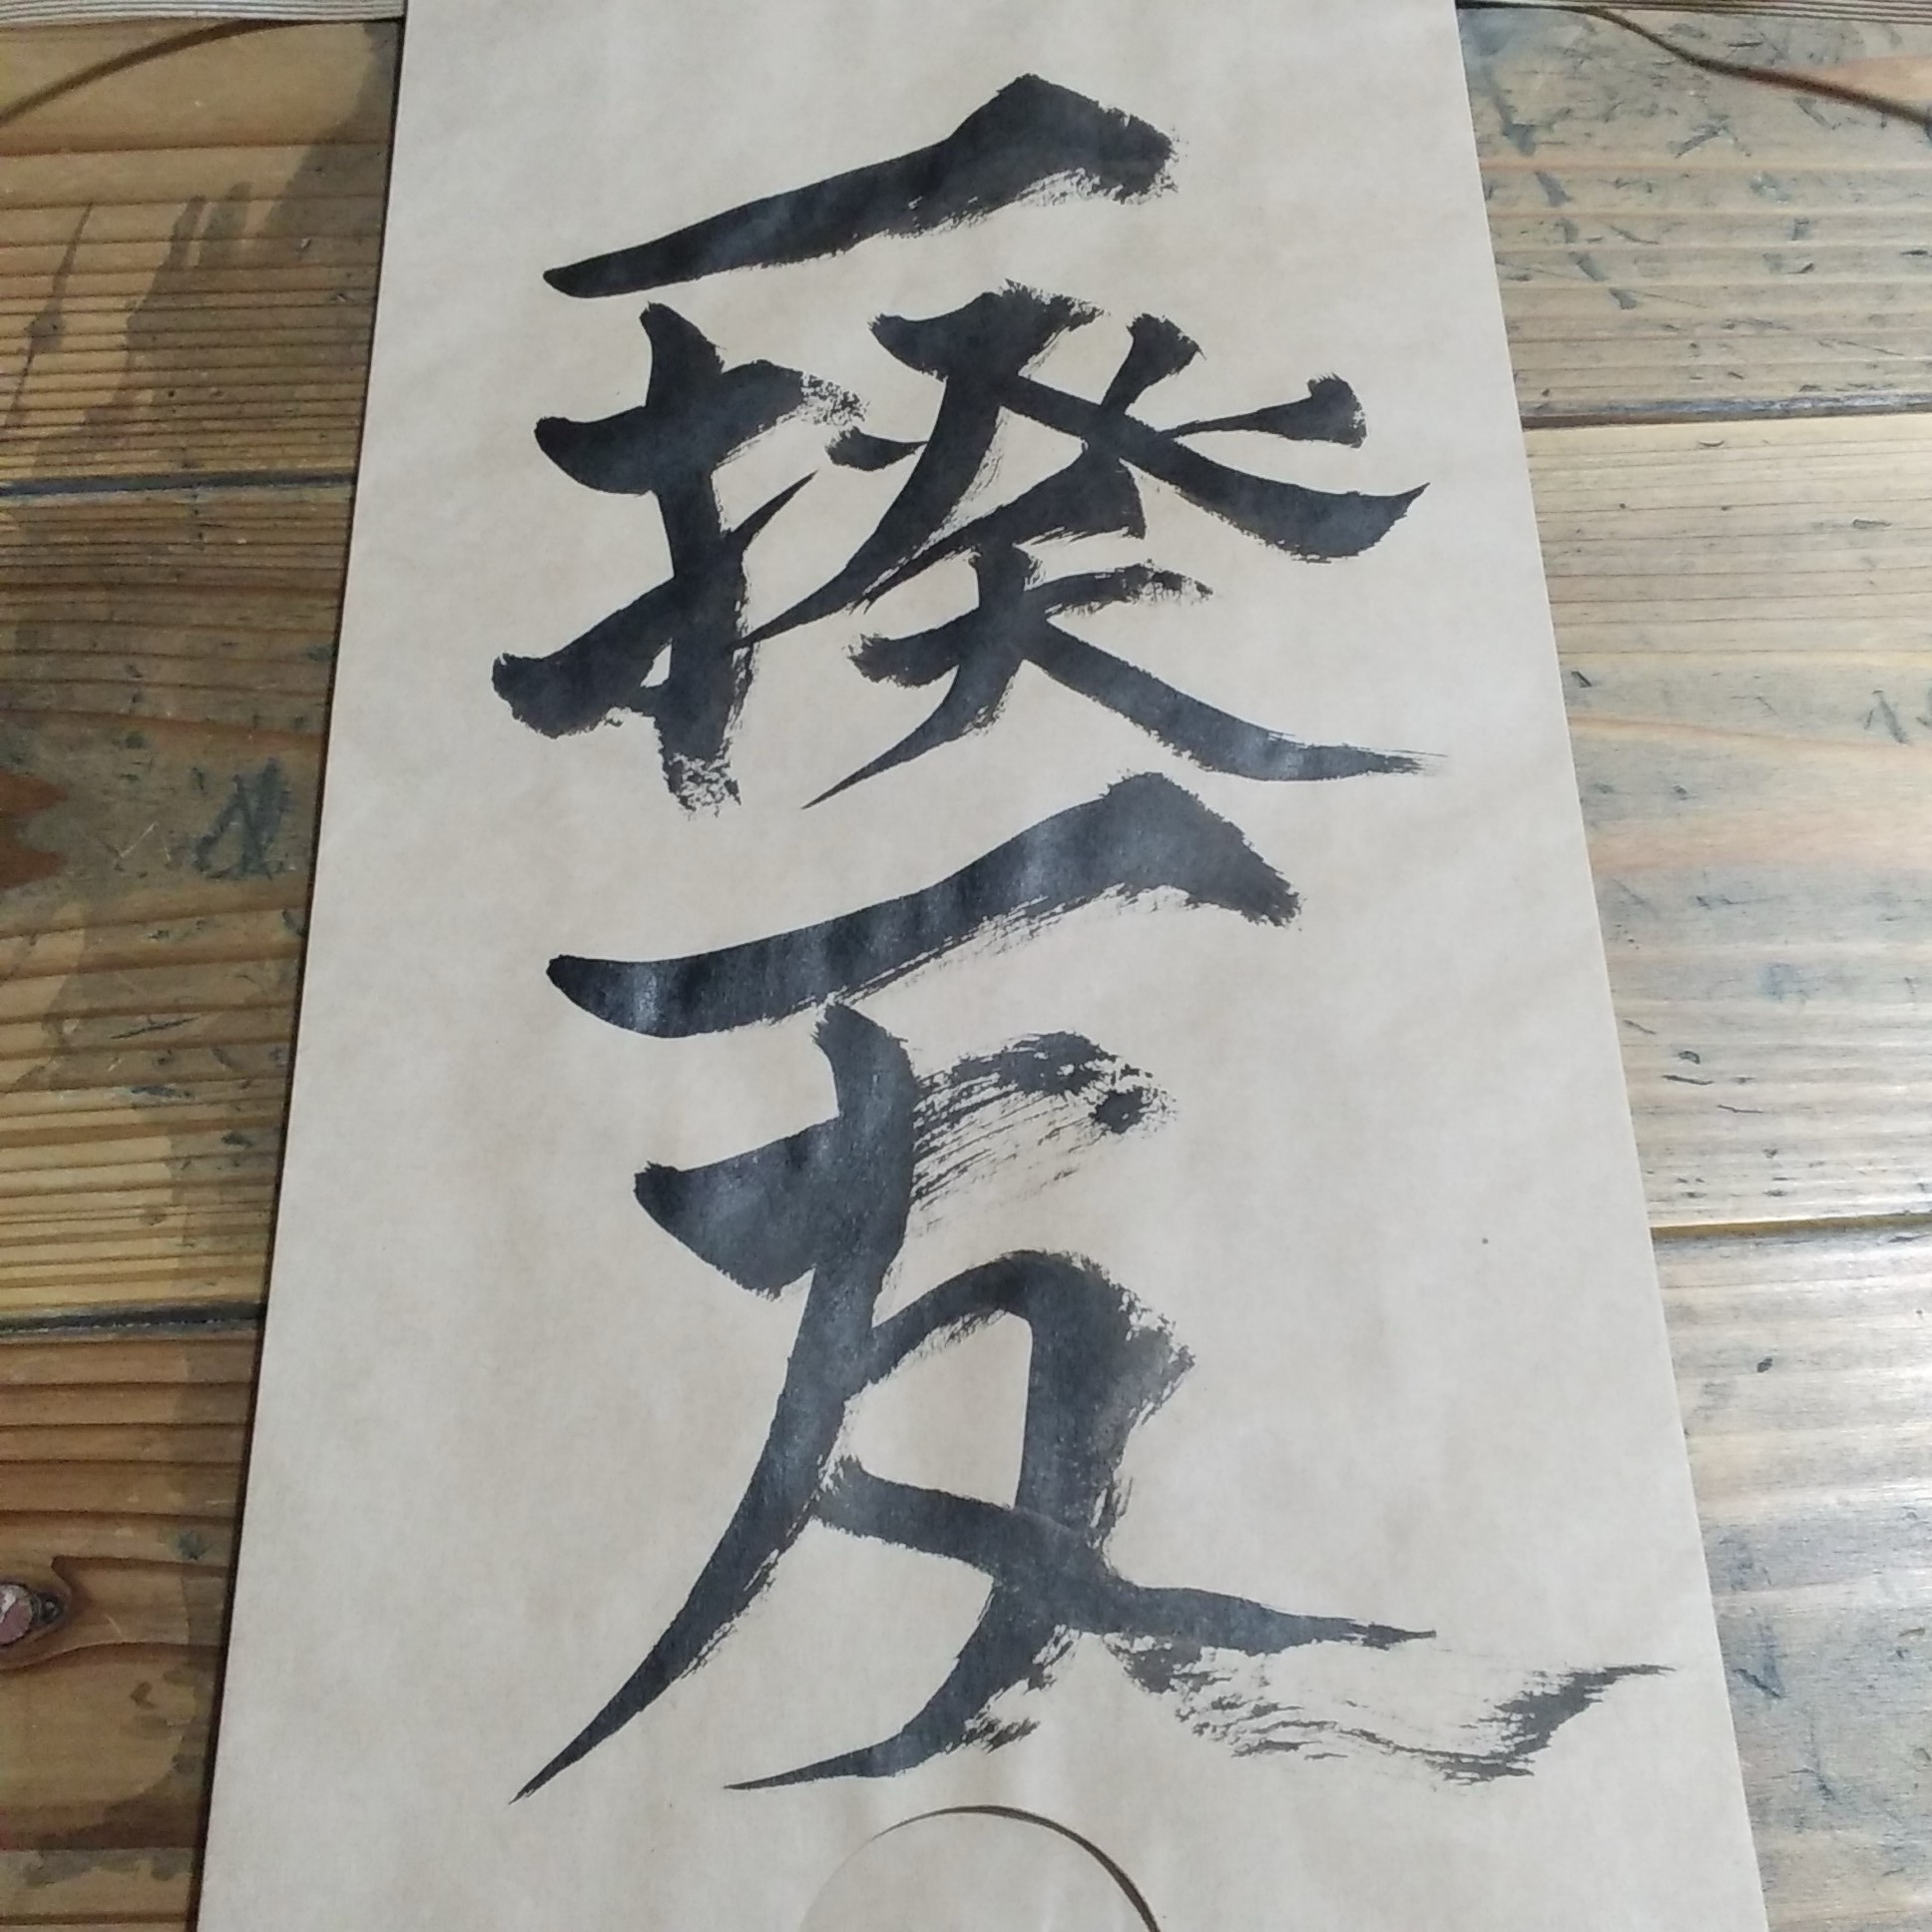 一揆一友